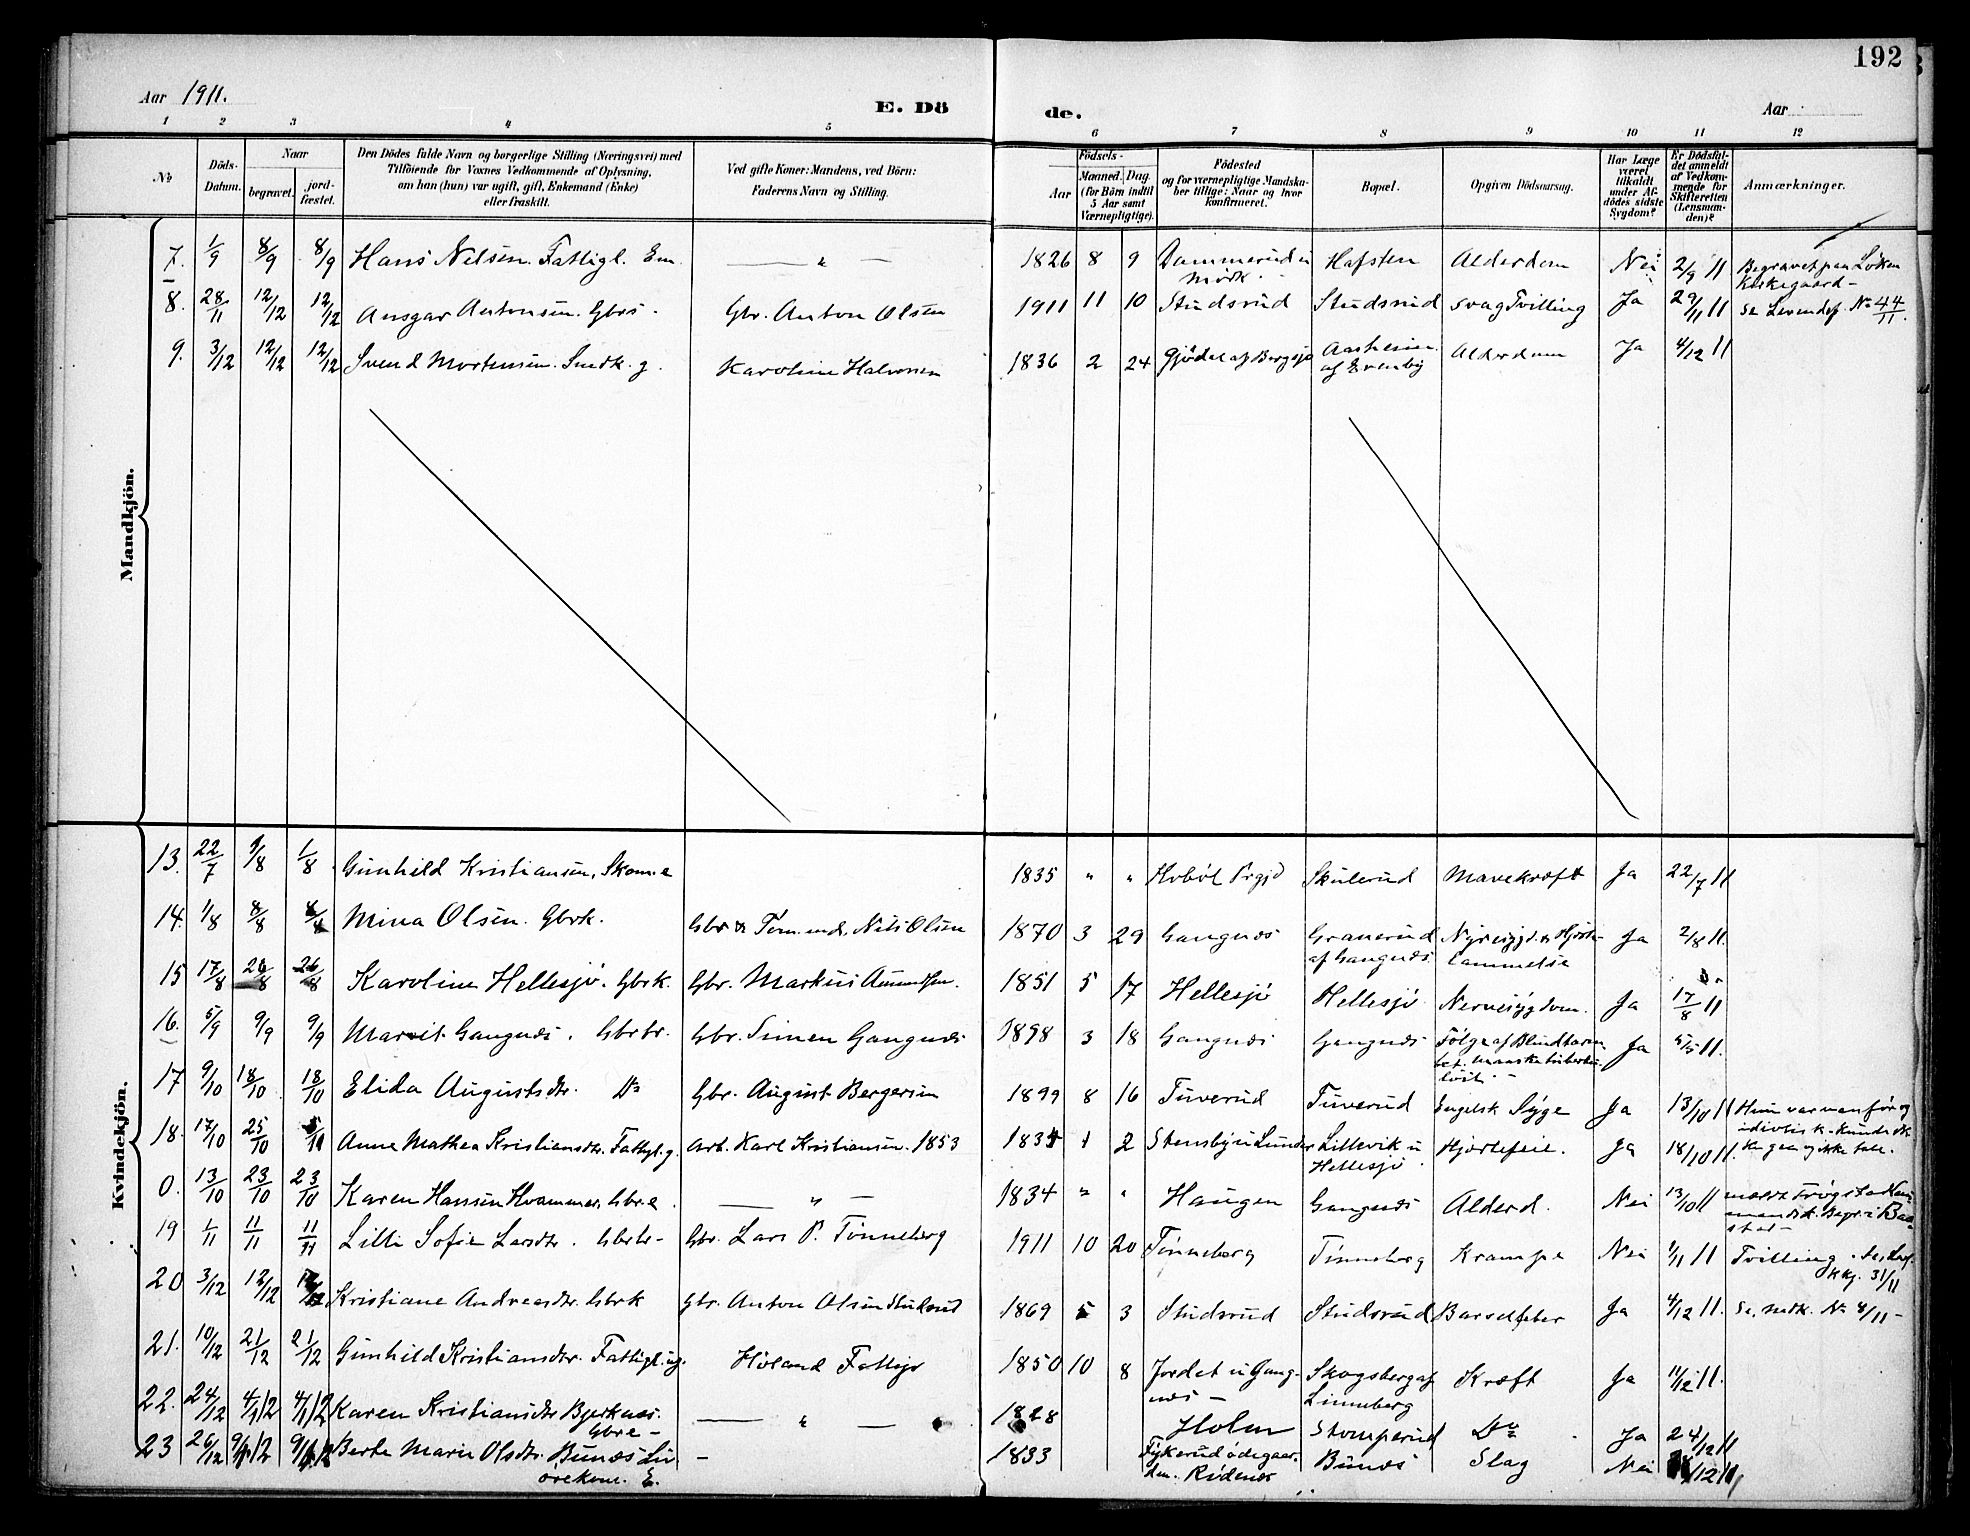 192
Aar 1911.
E. Dö
de.
Aar
1 2 3 4 5 6 7 8 9 10 11 12
No
Döds-Datum.
Naar
begravet. jord-fæstet.
Den Dödes fulde Navn og borgerlige Stilling (Næringsvei) med
Tilföiende for Voxnes Vedkommende af Oplysning,
om han (hun) var ugift, gift, Enkemand (Enke)
eller fraskilt.
Ved gifte Koner: Mandens, ved Börn:
Faderens Navn og Stilling.
Födsels-
Aar Maaned. Dag.
(for Börn indtil
5 Aar samt
Værnepligtige).
Födested
og for værnepligtige Mandska-
ber tillige: Naar og hvor
Konfirmeret.
Bopæl.
Opgiven Dödsaarsag.
Har Læge
været
tilkaldt
under Af-
dödes sidste
Sygdom?
Er Dödsfal-
det anmeldt
af Vedkom-
mende for
Skifteretten
(Lensman-
den)?
Anmærkninger.
Mandkjön.
7. 1/9 8/9 8/9 Hans Nilsen. Fattigl. Em. — " — 1826 8 9 Dammerud i Mörk. Hafsten Alderdom Nei 2/9 11 Begravet paa Löken Kirkegaard-
8. 28/11 12/12 12/12 Ansgar Antonsen. Gbrs. Gbr. Anton Olsen 1911 11 10 Studsrud Studsrud Svag Tvilling Ja 29/11 11 Se Levendef. No 44/11.
9. 3/12 12/12 12/12 Svend Mortensen. Smdk. g. Karoline Halvorsen 1836 2 24 Gjödal af Bergsjö Aasheim af Evenby Alderdom Ja 4/12 11
Kvindekjön.
13. 22/7 1/8 1/8 Gunhild Kristiansen, Skom.e 1835 " " Hobøl Prgjd Skulerud Mavekræft Ja 22/7 11
14. 1/8 8/8 8/8 Mina Olsen. Gbrk. Gbr & Tøm.md. Nils Olsen 1870 3 29 Gangnæs Granerud af Gangnæs. Nyresygd. & Hjerte-lammelse Ja 2/8 11.
15 17/8 26/8 26/8 Karoline Hellesjö. Gbrk. Gbr. Markus Amundsen. 1851 5 17 Hellesjö Hellesjö Nervesygdom. Ja 17/8 11
16. 5/9 9/9 9/9 Marit Gangnæs. Gbrbr. Gbr. Simen Gangnæs 1898 3 18 Gangnæs Gangnæs Følge af Blindtarm bet. Ja 5/5 11.
17 9/10 18/10 18/10 Elida Augustsdtr. Do Gbr. August Bergersen 1899 8 16 Tuverud Tuverud Engelsk Syge Ja 13/10 11 Hun var vanför og
18. 17/10 25/10 Anne Mathea Kristiansdtr. Fattigl. g. Arb. Karl Kristiansen. 1853 1 2 Stensby i Sunder Lillevik u Hellesjö. Hjertefeil. Ja 18/10 11.
0. 13/10 23/10 23/10 Karen Hansen Kvammer, Gbr.e — " — 1834 " " Haugen Gangnæs Alderd. Nei 13/10 11 Begr. i Baa-stad-
19 1/11 11/11 11/11 Lilli Sofie Larsdtr. Gbrbr- Gbr. Lars P. Tønneberg 1911 10 20 Tønneberg Tønneberg Krampe Nei 1/11 11 Tvilling. kkj. 31/11
20 3/12 12/12 12/12 Kristiane Andreasdtr. Gbrk Gbr. Anton Olsen Studsrud 1869 5 3 Studsrud Studsrud Barselfeber Ja 4/12 11. Se, Mdk. No 8/11-
21. 10/12 21/12 21/12 Gunhild Kristiansdtr. Fattigl. ug. Höland Fattigv 1850 10 8 Jordet u Gang-næs- Skogsberg af Linneberg Kræft Ja 11/12 11.
22. 24/12 4/1 12 4/1 12 Karen Kristiansdtr Bjerknæs. Gbre- — " — 1828 Holm Stomperud Do Ja 24/12 11
23 26/12 9/1 12 9/1 12 Berte Marie Olsdtr. Bunæs E. — 1833 Fykerud ödegaar-den. Rödenæs Bunæs Slag Nei /12 11